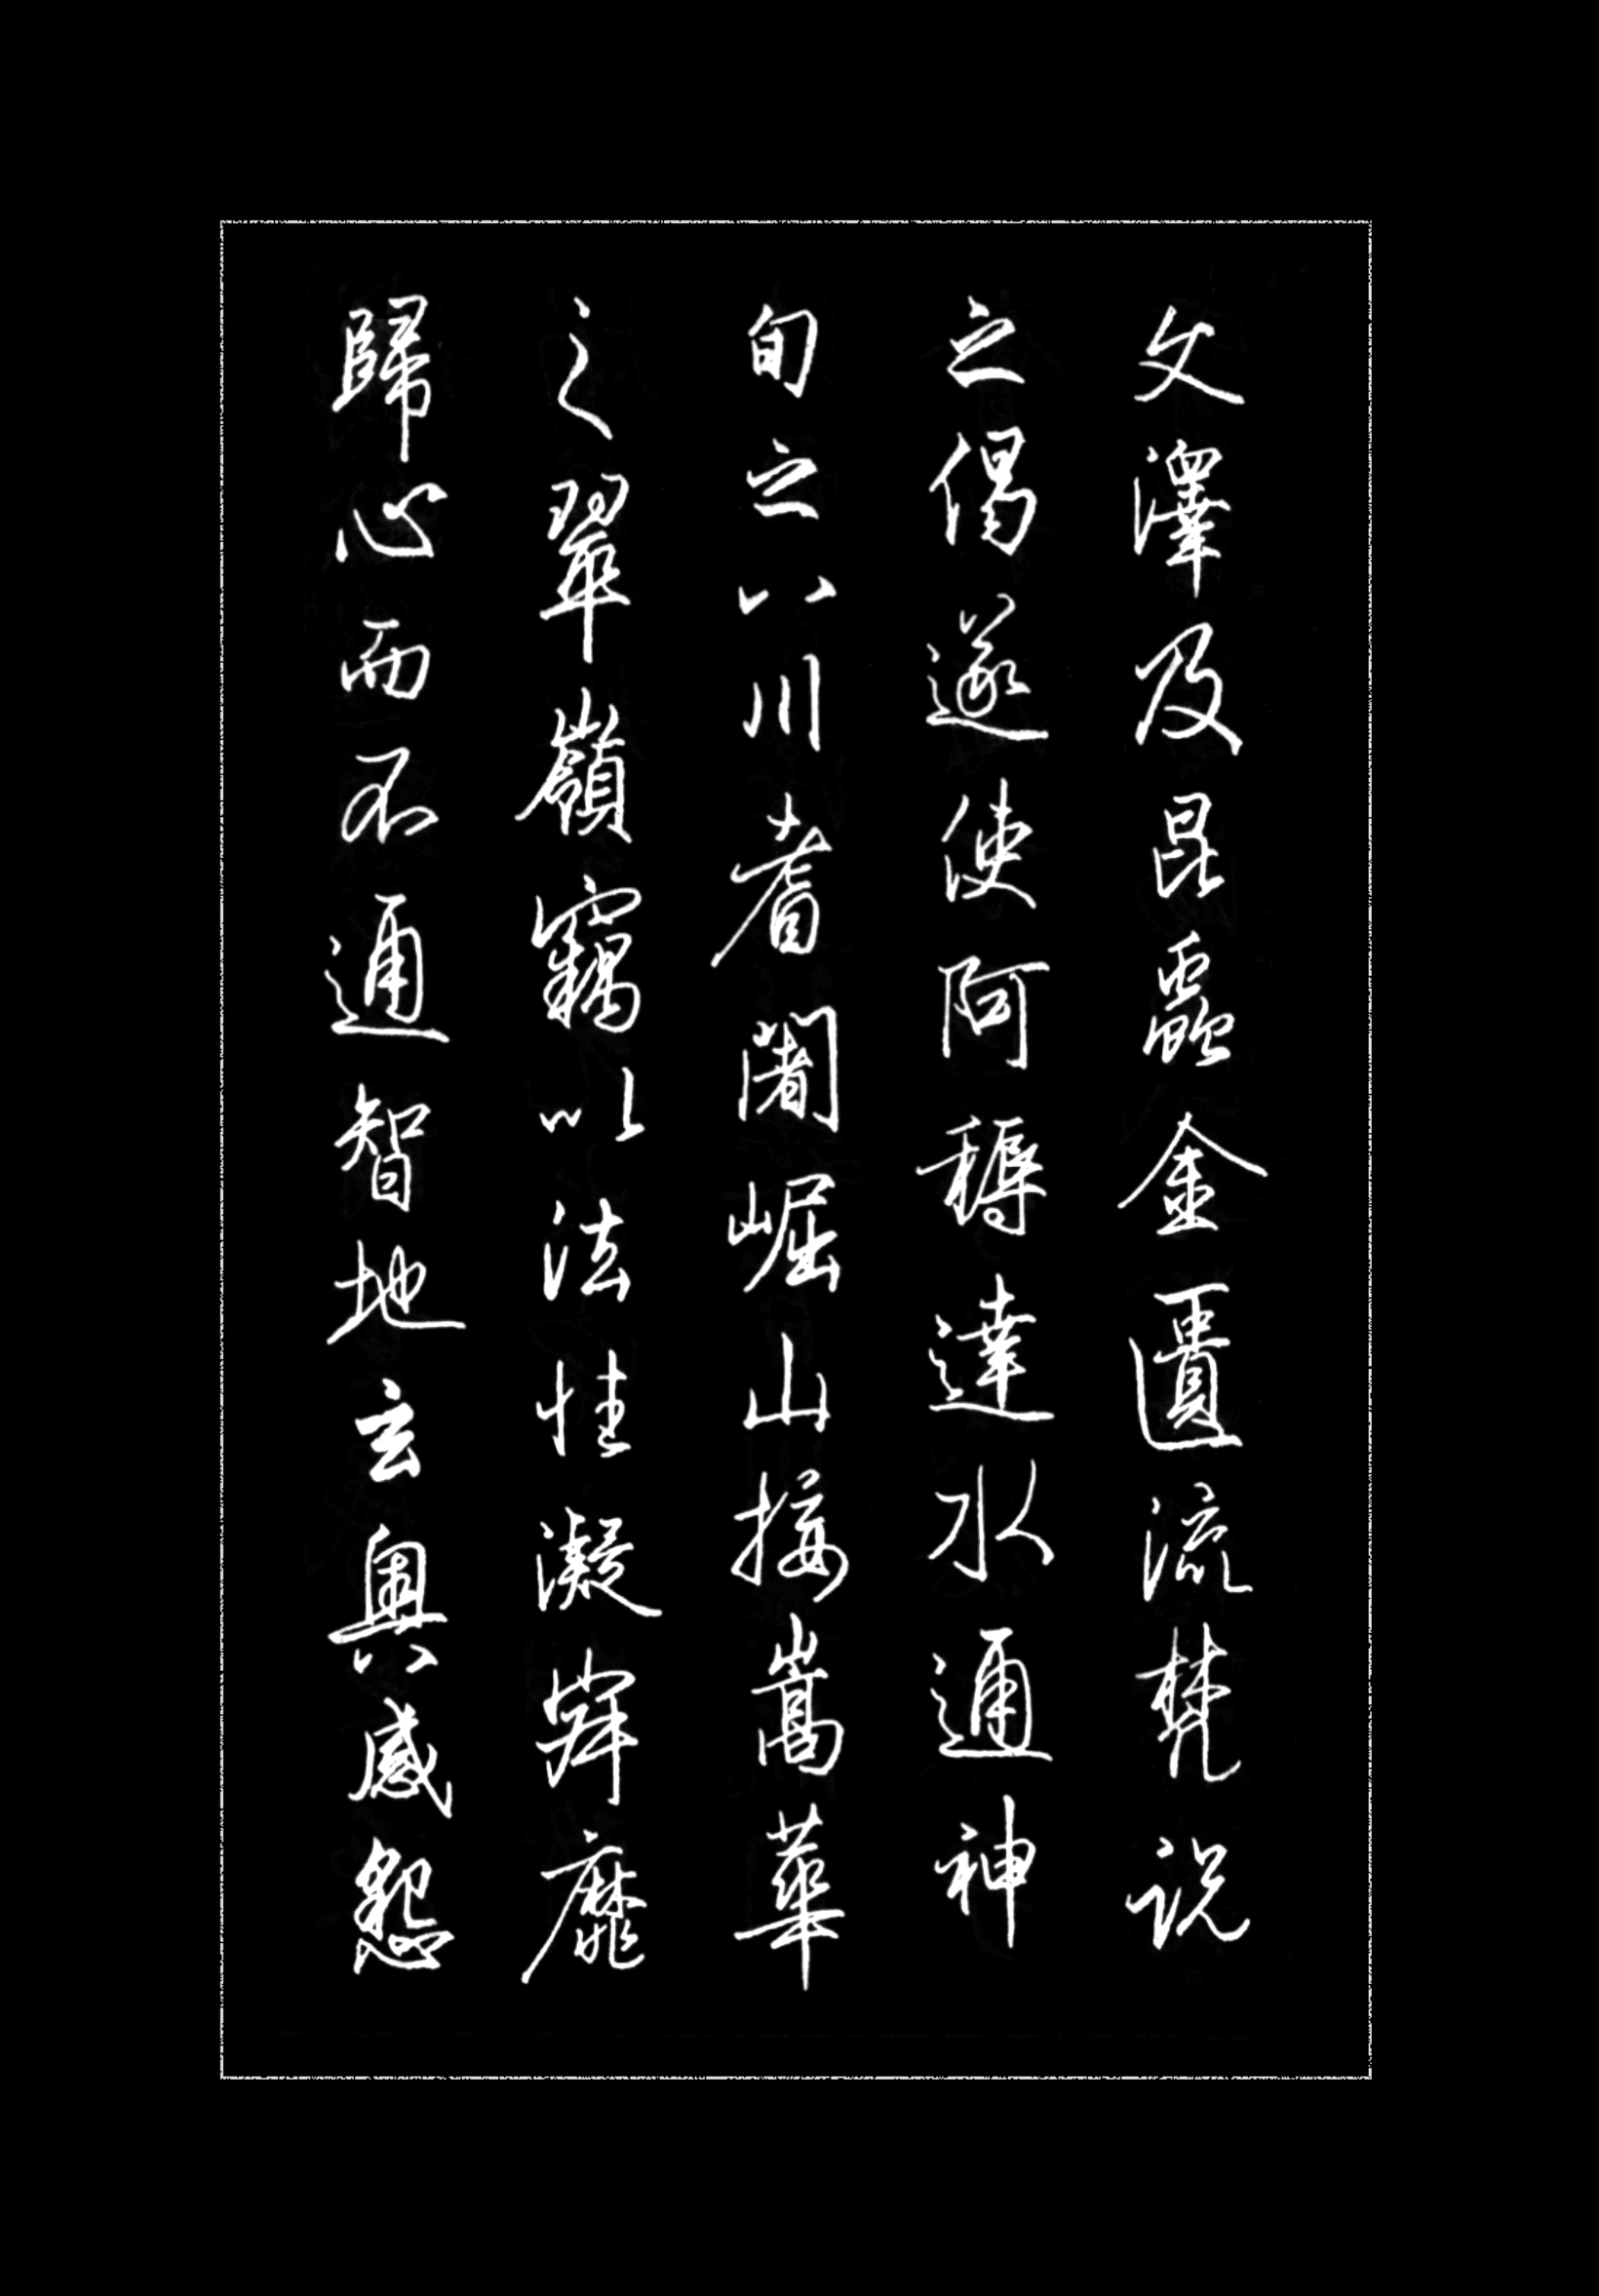 文澤及昆蟲金匱流梵説
之偈遂使阿耨達水通神
旬之八川耆闍崛山接嵩華
之翠嶺竊以法性凝寂靡
歸心而不通智地玄奥感懇